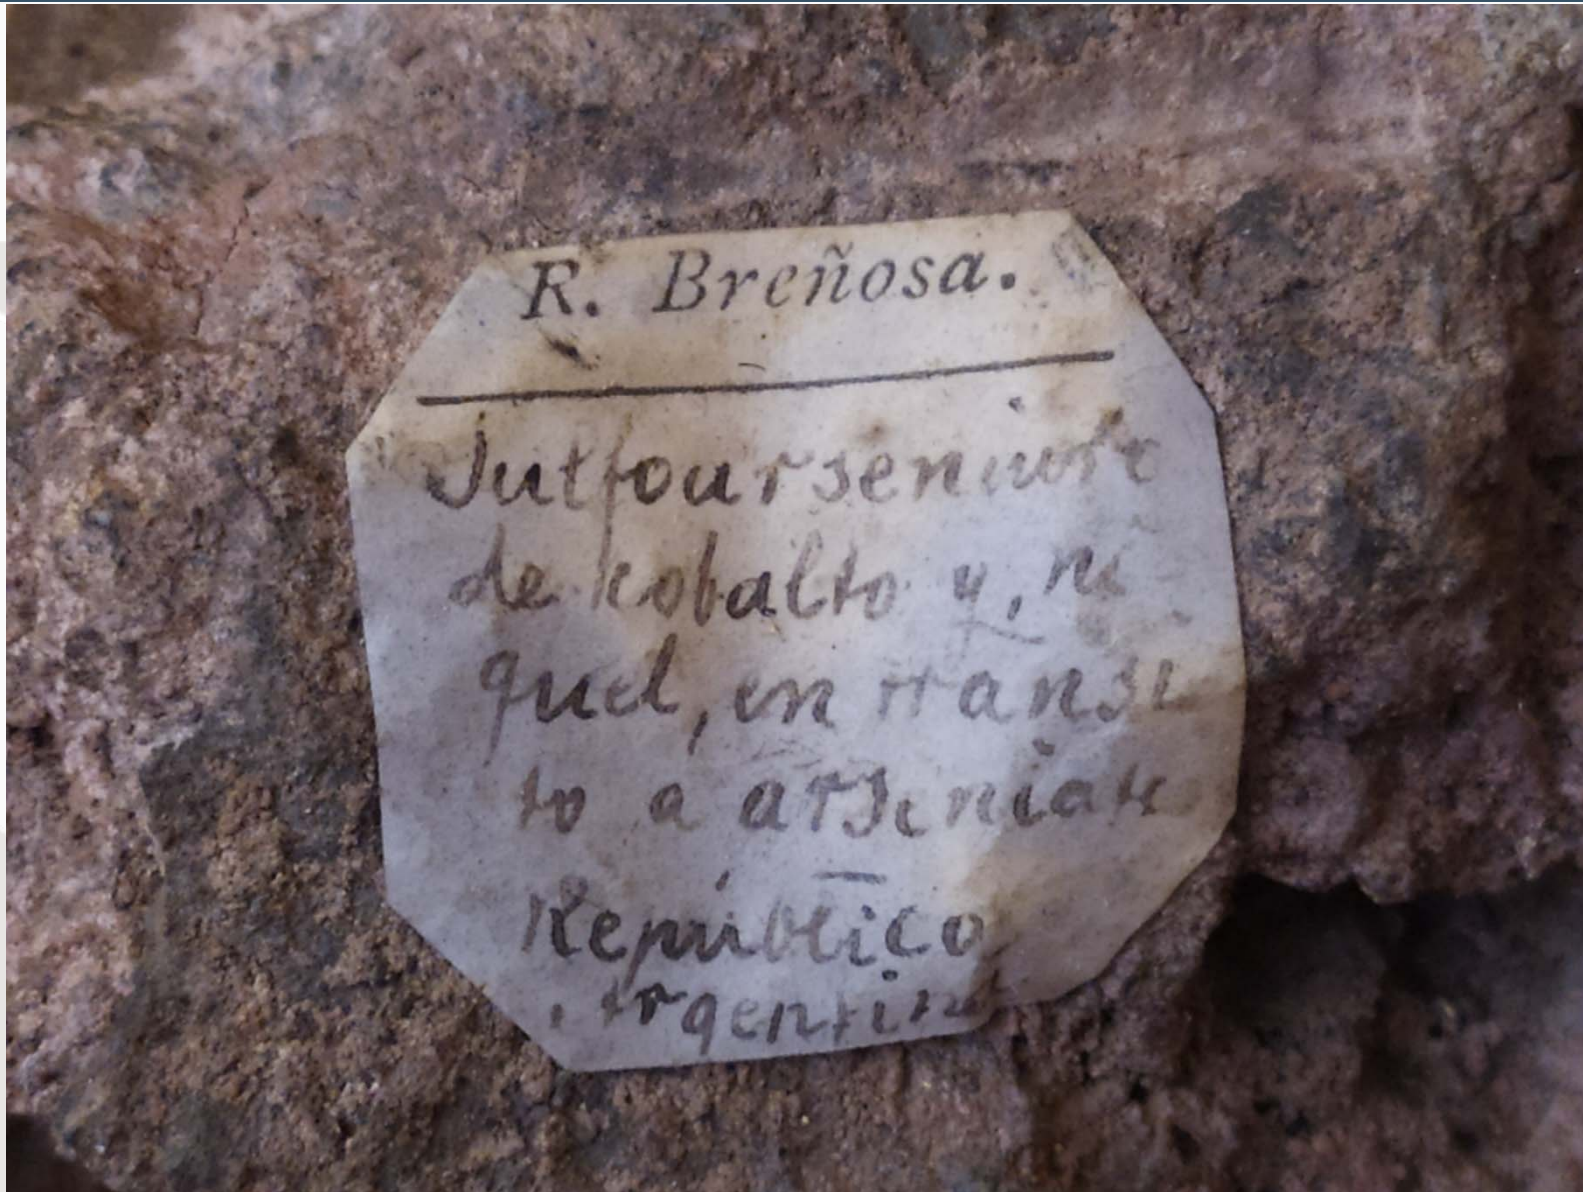 R. Breñosa.
Sulfoarseniuro
de kobalto y ni
quel, en transi
to a arseniato
República
Argentina